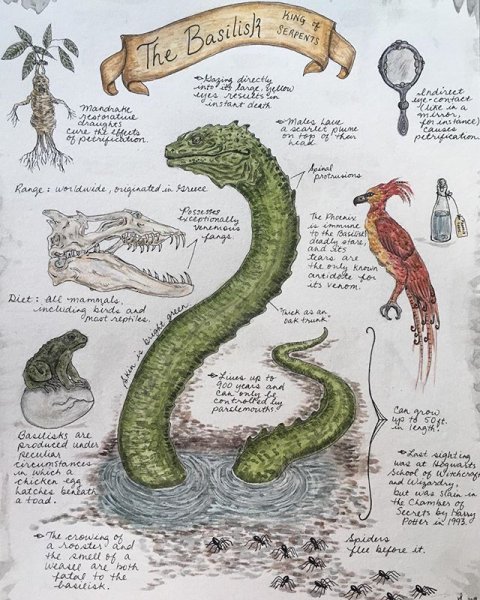 The Basilisk
KING of
SERPENTS
Gazing directly
into its large, yellow
eyes results in
instant death
Males have
a scarlet plume
on top of their
head
Indirect
eye-contact
(like in a
mirror,
for instance)
causes
petrification.
Mandrake
restorative
draughts
cure the effects
of petrification.
Spinal
protrusions
Range: worldwide, originated in Greece
Possesses
exceptionally
venomous
fangs.
The Phoenix
is immune
to the Basilisk's
deadly stare,
and its
tears are
the only known
antidote for
its venom.
Diet: All mammals,
including birds and
most reptiles.
skin is bright green
"Thick as an
oak trunk"
Lives up to
900 years and
can only be
controlled by
parselmouths
Can grow
up to 50ft.
in length.
Basilisks are
produced under
peculiar
circumstances
in which a
chicken egg
hatches beneath
a toad.
Last sighting
was at Hogwarts
School of Witchcraft
and Wizardry,
but was slain in
the Chamber of
Secrets by Harry
Potter in 1993.
The crowing of
a rooster and the
smell of a
weasel are both
fatal to the
basilisk.
Spiders
flee before it.